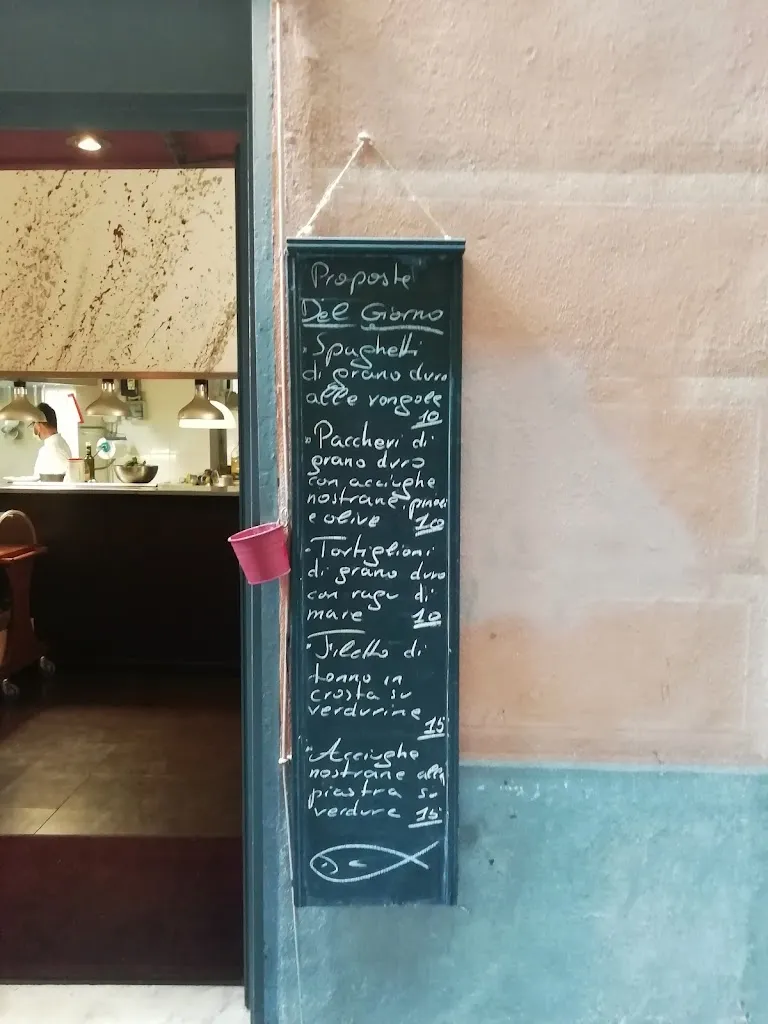 Proposte
Del Giorno
• Spaghetti
di grano duro
alle vongole
10
• Paccheri di
grano duro
con acciughe
nostrane, pinoli
e olive 10
• Tortiglioni
di grano duro
con ragu di
mare 10
• Filetto di
tonno in
crosta su
verdurine
15
• Acciughe
nostrane alla
piastra su
verdure 15